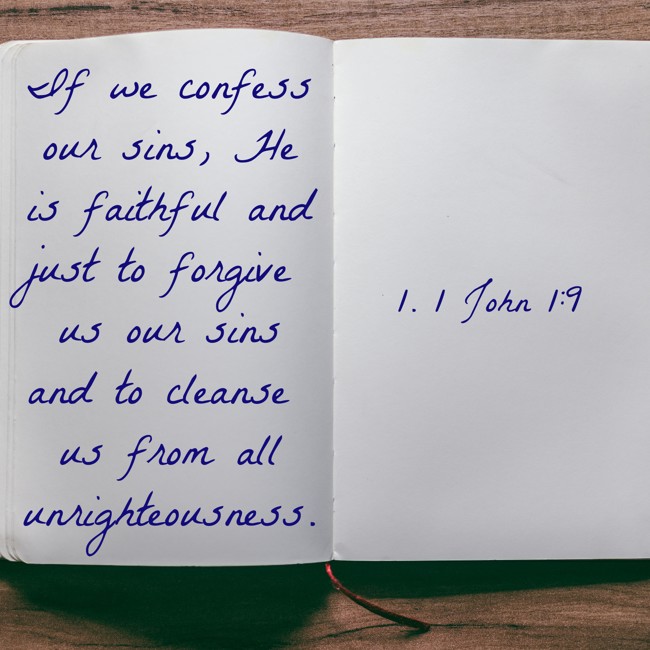 If we confess
our sins, He
is faithful and
just to forgive
us our sins
and to cleanse
us from all
unrighteousness.
1. 1 John 1:9